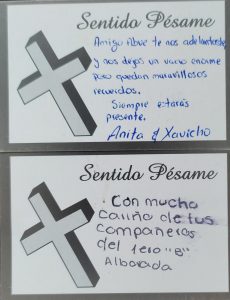 Sentido Pésame
Amigo flive te nos adelantaste
y nos dejas un vacio enorme
Pero quedan maravillosos
recuerdos.
Siempre estarás
presente.
Anita y Xavicho
Sentido Pésame
Con mucho
cariño de tus
compañeras
del 1ero "B"
Alborada